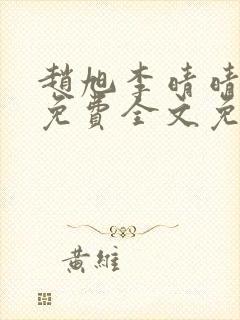 趙旭李晴晴
免費全文免
黃維